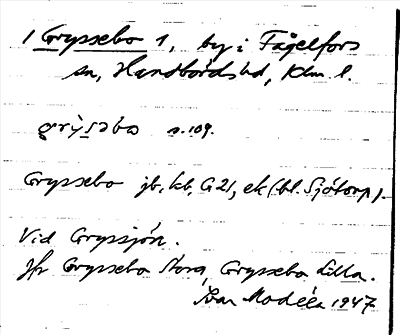 / Gryssebo 1, by i Fågelfors
sn, Handbörds hd, Klm. l.
grỳsəbo s. 109.
Gryssebo jb, kb, G 21, ek (bl. Sjötorp).
Vid Gryssjön.
Jfr Gryssebo Stora, Gryssebo Lilla.
Ivar Modéer 1947